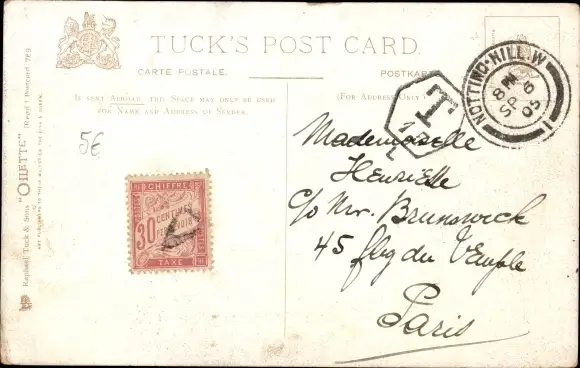 TUCK'S POST CARD.
CARTE POSTALE. POSTKARTE
IF SENT ABROAD, THIS SPACE MAY ONLY BE USED
FOR NAME AND ADDRESS OF SENDER.
(FOR ADDRESS ONLY)
NOTTING-HILL.W
8 PM
SP 6
05
1
T
L
5€
CHIFFRE
30 CENTIMES
TAXE
Mademoiselle
Henriette
c/o Mr. Brunswick
45 fbg du Temple
Paris
Raphael Tuck & Sons "OILETTE" (Regd.) Postcard 769